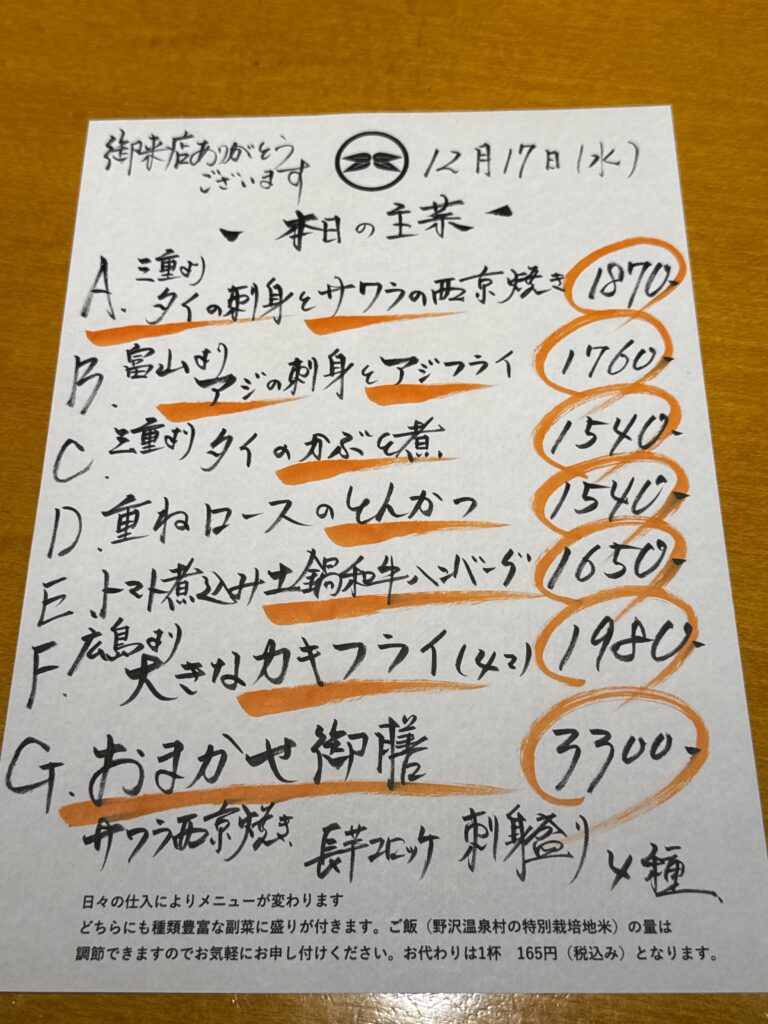 御来店ありがとう
ございます
12月17日(水)
本日の主菜
A. 三重より
タイの刺身とサワラの西京焼き 1870-
B. 富山より
アジの刺身とアジフライ 1760-
C. 三重より タイのかぶと煮 1540-
D. 重ねロースのとんかつ 1540-
E. トマト煮込み土鍋和牛ハンバーグ 1650-
F. 広島より
大きなカキフライ(4コ) 1980-
G. おまかせ御膳 3300-
サワラ西京焼き 長芋コロッケ 刺身盛り 4種
日々の仕入によりメニューが変わります
どちらにも種類豊富な副菜に盛りが付きます。ご飯（野沢温泉村の特別栽培地米）の量は
調節できますのでお気軽にお申し付けください。お代わりは1杯 165円（税込み）となります。